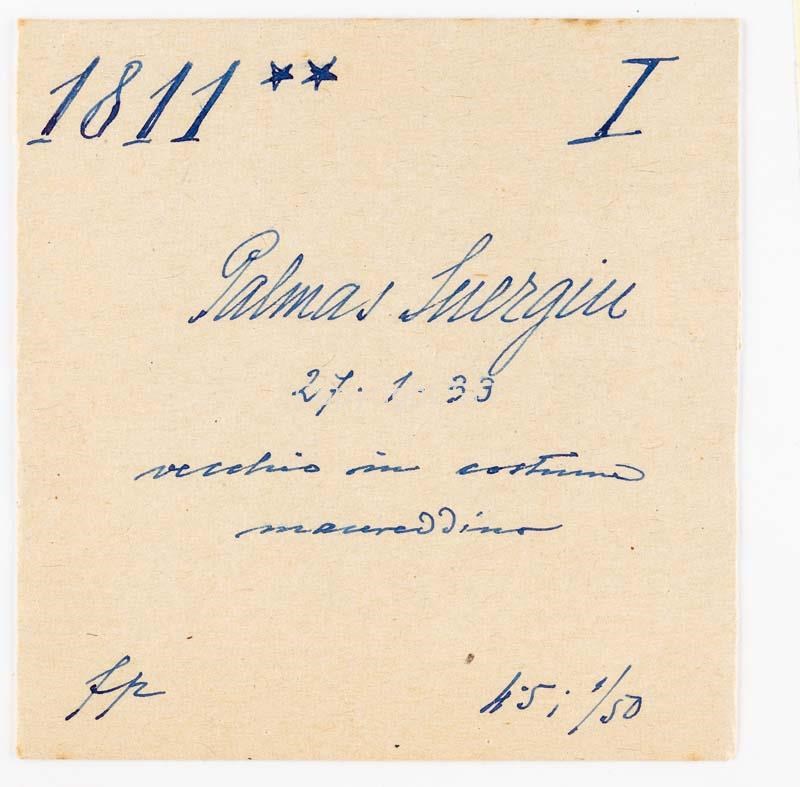 1811 ** I
Palmas Suergiu
27. 1. 33
vecchio in costume
maureddino
fp
4.5; 1/50